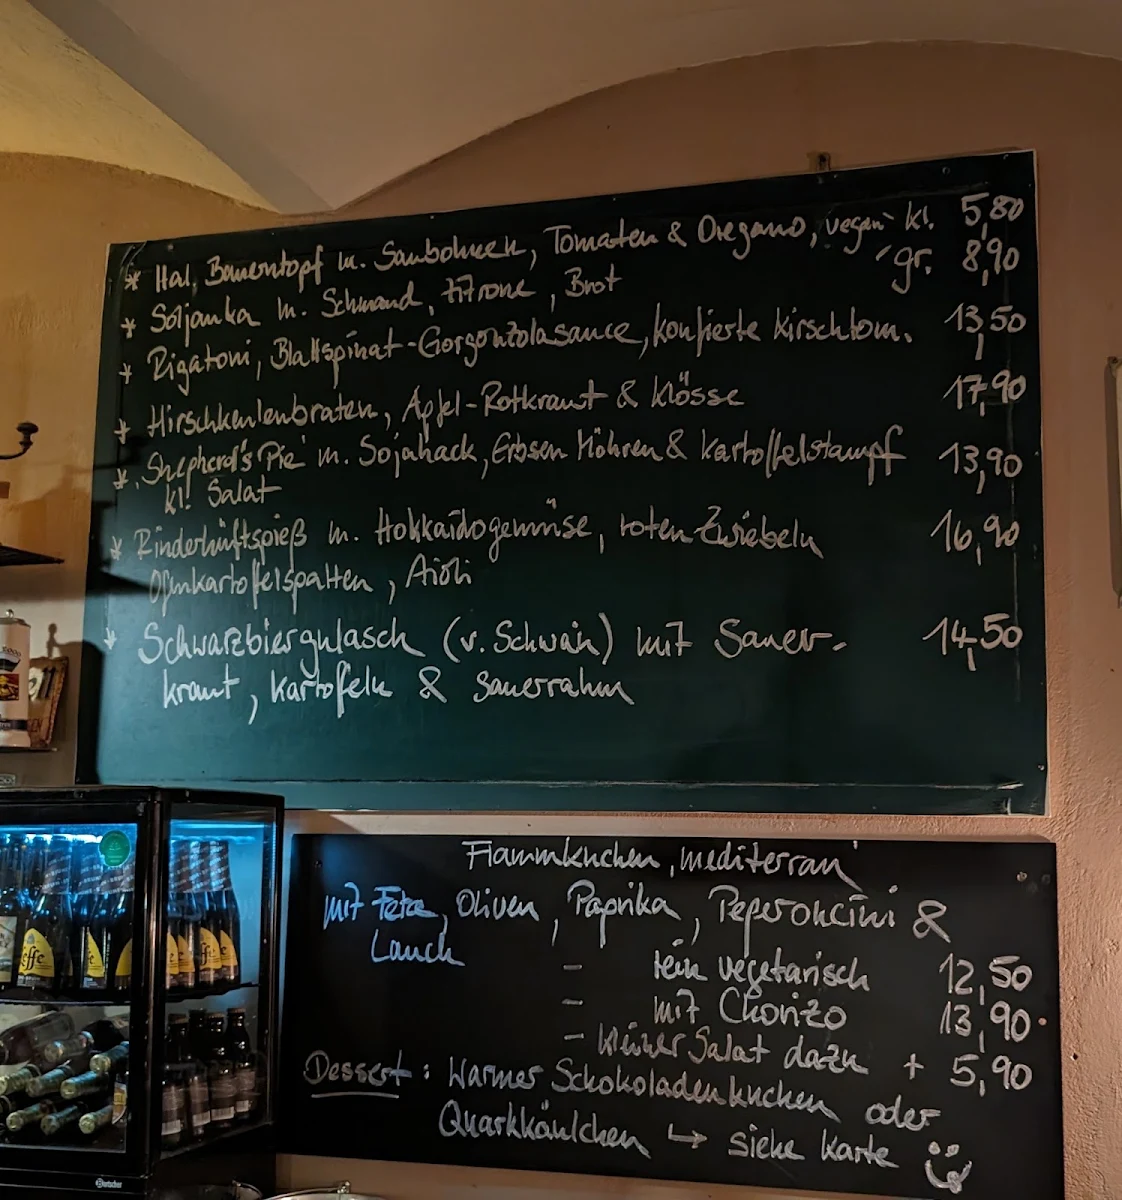 * Ital. Bauerntopf m. Saubohnen, Tomaten & Oregano, vegan kl. 5,80
* Soljanka m. Schmand, Zitrone, Brot gr. 8,90
* Rigatoni, Blattspinat-Gorgonzolasauce, konfierte Kirschtom. 13,50
* Hirschkeulenbraten, Apfel-Rotkraut & Klösse 17,90
* ,Shepherd's Pie' m. Sojahack, Erbsen Möhren & Kartoffelstampf 13,90
kl. Salat
* Rinderhüftspieß m. Hokkaidogemüse, roten Zwiebeln 16,90
Ofenkartoffelspalten, Aioli
* Schwarzbiergulasch (v. Schwein) mit Sauer- 14,50
kraut, Kartoffeln & Sauerrahm
Flammkuchen ,mediterran'
mit Feta, Oliven, Paprika, Peperoncini &
Lauch
- rein vegetarisch 12,50
- mit Chorizo 13,90
- kleiner Salat dazu + 5,90
Dessert: Warmer Schokoladenkuchen oder
Quarkkäulchen ↳ siehe Karte
Leffe
Bartscher